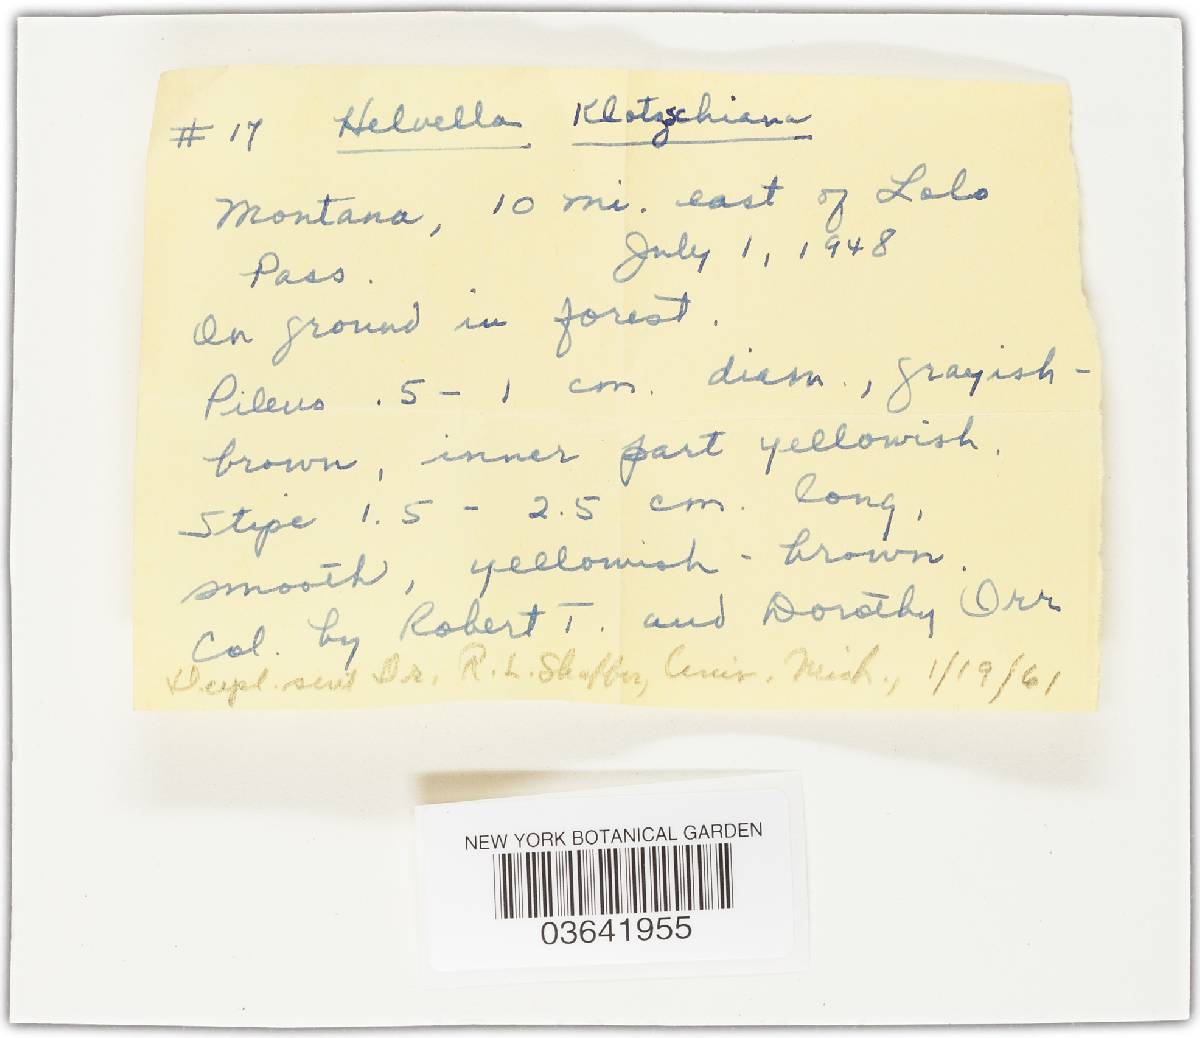 # 17 Helvella Klotzschiana
Montana, 10 mi. east of Lolo
Pass. July 1, 1948
On ground in forest.
Pileus .5 - 1 cm. diam., grayish-
brown, inner part yellowish.
Stipe 1.5 - 2.5 cm. long,
smooth, yellowish-brown.
Col. by Robert T. and Dorothy Orr
Dupl. sent Dr. R. L. Shaffer, Univ. Mich., 1/19/61
NEW YORK BOTANICAL GARDEN
03641955